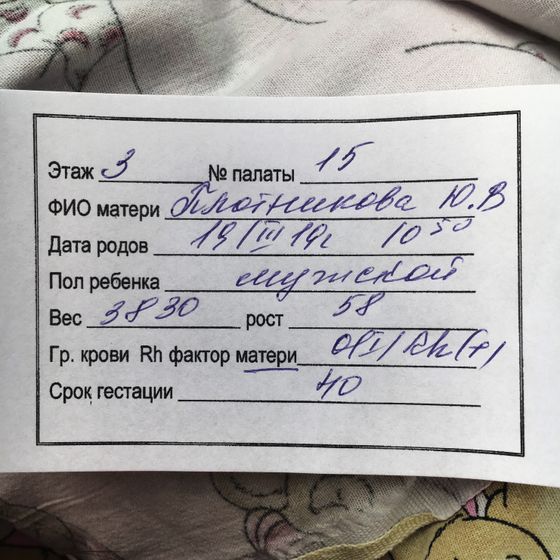 Этаж 3 № палаты 15
ФИО матери Плотникова Ю.В
Дата родов 19/III 19г 10 50
Пол ребенка мужской
Вес 3830 рост 58
Гр. крови Rh фактор матери 0(I) Rh(+)
Срок гестации 40